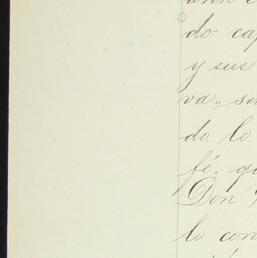 do cap
y sus
va, so
do lo
fé, qu
Don
lo con